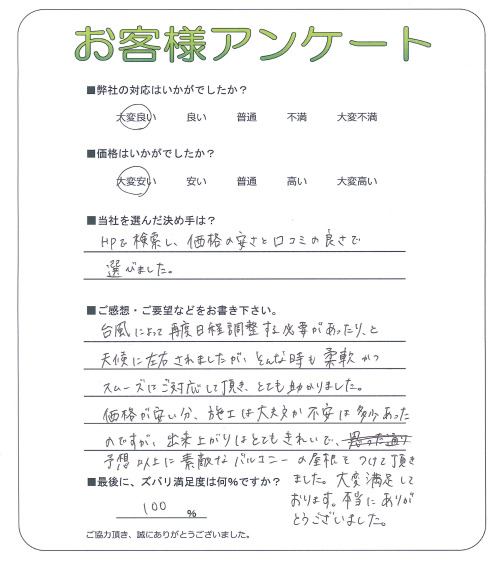 お客様アンケート
■弊社の対応はいかがでしたか？
大変良い 良い 普通 不満 大変不満
■価格はいかがでしたか？
大変安い 安い 普通 高い 大変高い
■当社を選んだ決め手は？
HPで検索し、価格の安さと口コミの良さで
選びました。
■ご感想・ご要望などをお書き下さい。
台風によって再度日程調整する必要があったり、と
天候に左右されましたが、そんな時も柔軟かつ
スムーズにご対応して頂き、とても助かりました。
価格が安い分、施工は大丈夫か不安は多少あった
のですが、出来上がりはとてもきれいで、思った通り
予想以上に素敵なバルコニーの屋根をつけて頂き
ました。大変満足して
おります。本当にありが
とうございました。
■最後に、ズバリ満足度は何%ですか？
100 %
ご協力頂き、誠にありがとうございました。